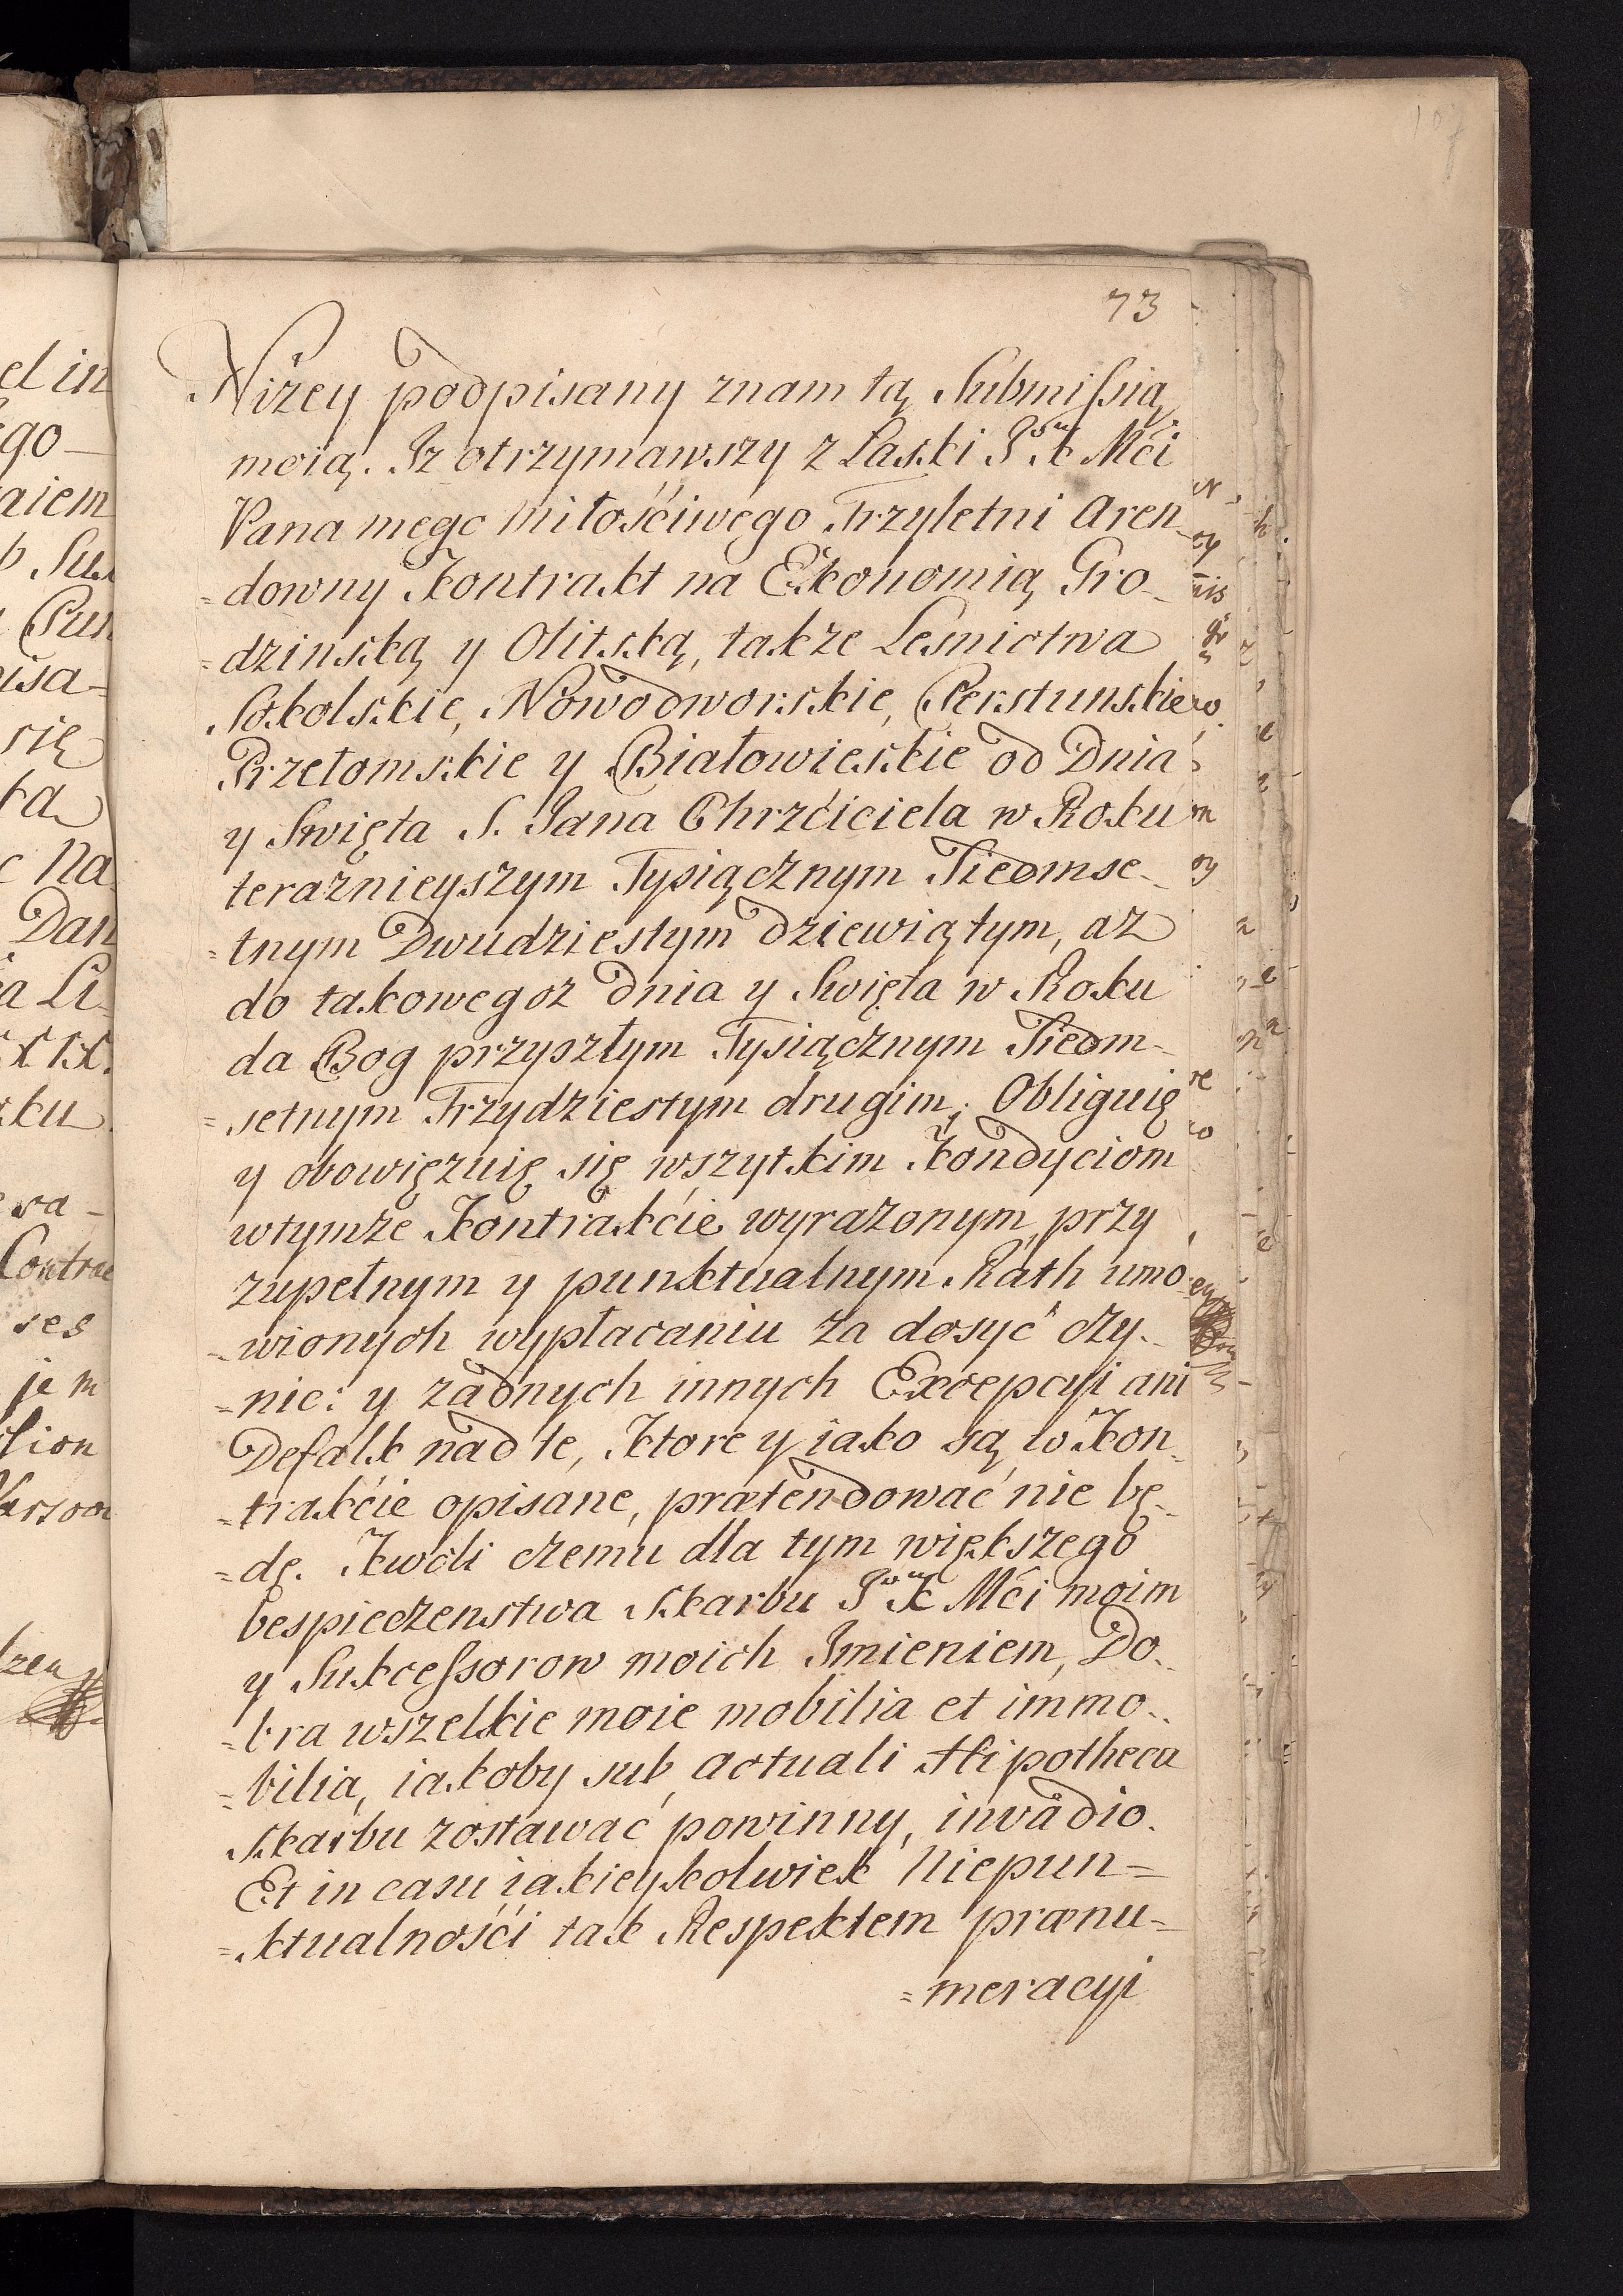 107
73
Niżey podpisany znam tą Submissią
moią. Iz otrzymawszy z Łaski J K Mći
Pana mego miłośćiwego Trzyletni Aren-
=downy Kontrakt na Ekonomią Gro-
=dzinską y Olitską, także Lesnictwa
Sokolskie, Nowodworskie, Perstunskie
Przełomskie y Białowieskie od Dnia
y Swięta S. Jana Chrzćiciela w Roku
teraznieyszym Tysiącznym Siedmse-
=tnym Dwudziestym dziewiątym, aż
do takowegoz dnia y Swięta w Roku
da Bog przyszłym Tysiącznym Siedm-
=setnym Trzydziestym drugim; Obliguię
y obowięzuię się wszytkim Kondyciom
w tymze Kontrakćie wyrazonym, przy
zupełnym y punktualnym Rath umo-
=wionych wypłacaniu za dosyć czy-
=nic: y zadnych innych Excepcyi ani
Defalk nad te, ktore y iako są w Kon-
=trakćie opisane, prætendować nie bę-
=dę. Kwoli czemu dla tym większego
bespieczenstwa Skarbu J K Mći moim
y Sukcessorow moich Imieniem, Do-
=bra wszelkie moie mobilia et immo-
=bilia, iakoby sub actuali Hipotheca
Skarbu zostawać powinny, invadio.
Et in casu iakieykolwiek Niepun=
=ktualnośći tak Respektem prænu=
=meracyi